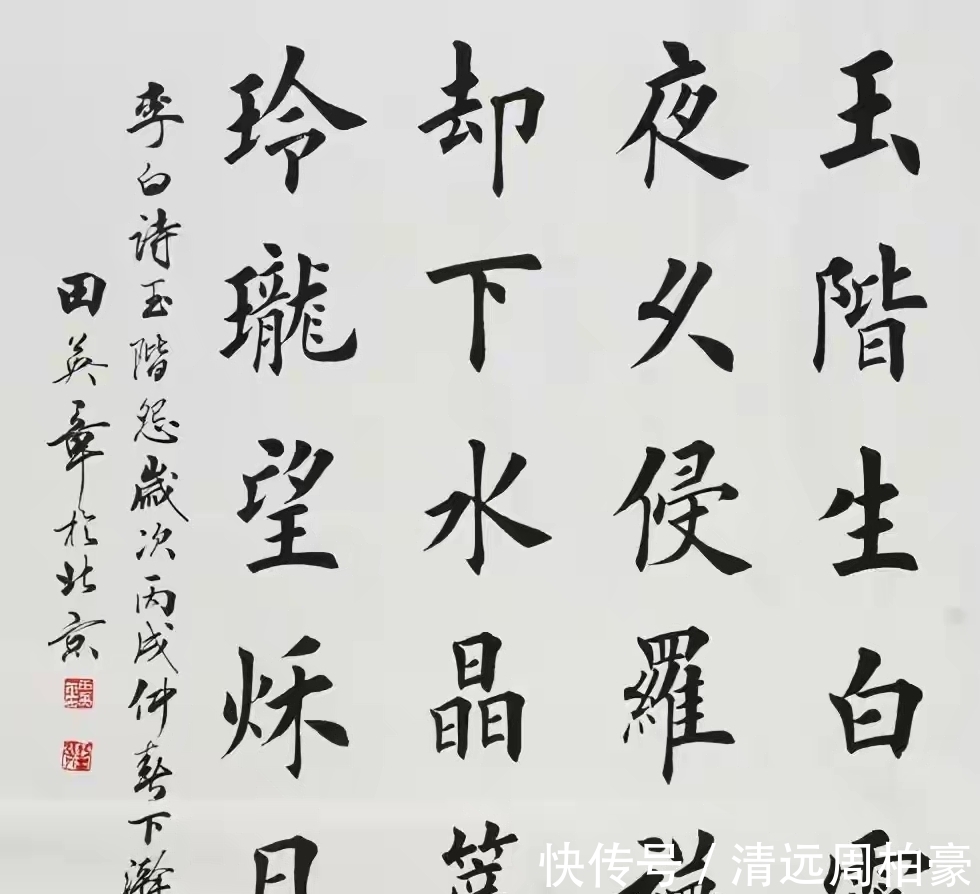 玉階生白
夜久侵羅
却下水晶
玲瓏望秌月
李白詩玉階怨歲次丙戌仲春下
田英章於北京
快传号 / 清远周拍豪